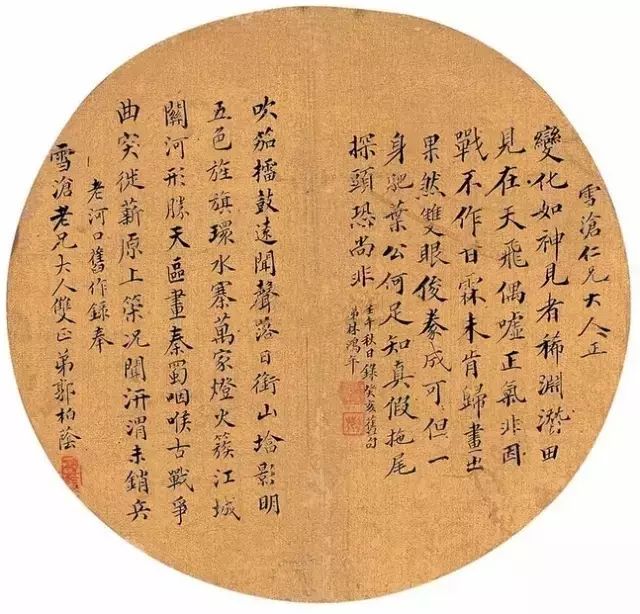 雪滄仁兄大人正
變化如神見者稀淵潛田
見在天飛偶噓正氣非酣
戰不作甘霖未肯歸畫出
果然雙眼俊豢成可但一
身肥葉公何足知真假拖尾
探頭恐尚非
壬午秋日錄癸亥舊句
弟林鴻年
吹笳擂鼓遠聞聲落日銜山堞影明
五色旌旗環水寨萬家燈火簇江城
關河形勝天區畫秦蜀咽喉古戰爭
曲突徙薪原上策況聞汧渭未銷兵
老河口舊作錄奉
雪滄老兄大人雙正弟郭柏蔭